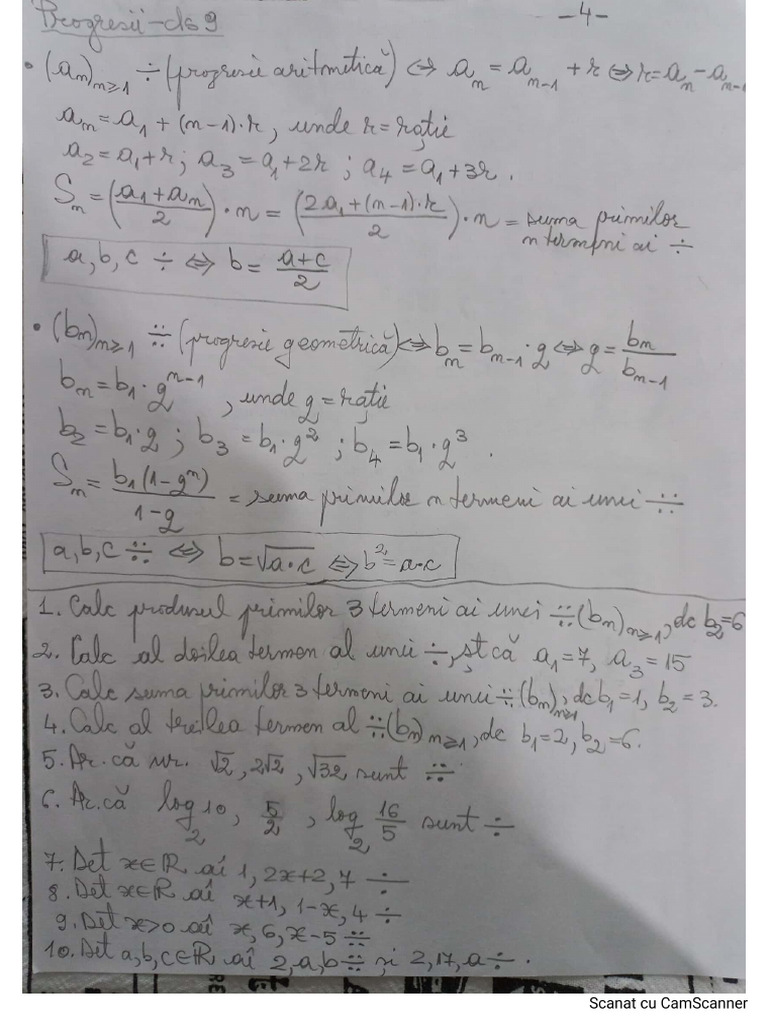 Progresii-cls 9
-4-
• (aₙ)ₙ≥₁ ÷ (progresie aritmetică) ⇔ aₙ = aₙ₋₁ + r ⇔ r = aₙ - aₙ₋₁
aₙ = a₁ + (n-1)·r, unde r = rație
a₂ = a₁+r; a₃ = a₁+2r; a₄ = a₁+3r.
Sₙ = ((a₁+aₙ)/2)·n = ((2a₁+(n-1)·r)/2)·n = suma primilor
n termeni ai ÷
a, b, c ÷ ⇔ b = (a+c)/2
• (bₙ)ₙ≥₁ ∺ (progresie geometrică) ⇔ bₙ = bₙ₋₁·q ⇔ q = bₙ/bₙ₋₁
bₙ = b₁·qⁿ⁻¹, unde q = rație
b₂ = b₁·q; b₃ = b₁·q²; b₄ = b₁·q³.
Sₙ = b₁(1-qⁿ)/(1-q) = suma primilor n termeni ai unei ∺
a, b, c ∺ ⇔ b = √(a·c) ⇔ b² = a·c
1. Calc produsul primilor 3 termeni ai unei ∺ (bₙ)ₙ≥₁, dc b₂=6
2. Calc al doilea termen al unei ÷, șt că a₁=7, a₃=15
3. Calc suma primilor 3 termeni ai unei ∺ (bₙ)ₙ≥₁, dc b₁=1, b₂=3.
4. Calc al treilea termen al ∺ (bₙ)ₙ≥₁, dc b₁=2, b₂=6.
5. Ar. că nr. √2, 2√2, √32 sunt ∺
6. Ar. că log₂10, 5/2, log₂ 16/5 sunt ÷
7. Det x∈R aî 1, 2x+2, 7 ÷
8. Det x∈R aî x+1, 1-x, 4 ÷
9. Det x>0 aî x, 6, x-5 ∺
10. Det a,b,c∈R aî 2, a, b ∺ și 2, 17, a ÷.
Scanat cu CamScanner